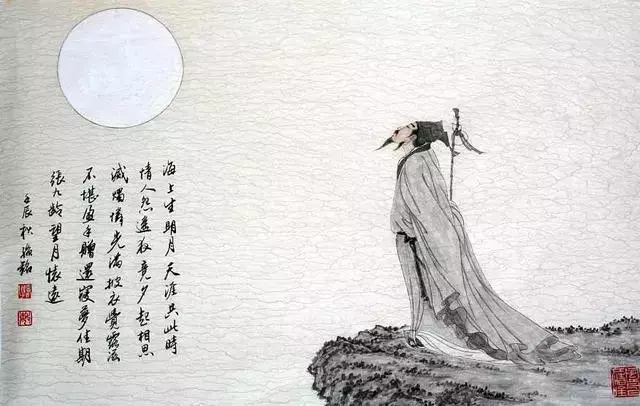 海上生明月 天涯共此時
情人怨遙夜 竟夕起相思
滅燭憐光滿 披衣覺露滋
不堪盈手贈 還寢夢佳期
張九齡望月懷遠
壬辰秋